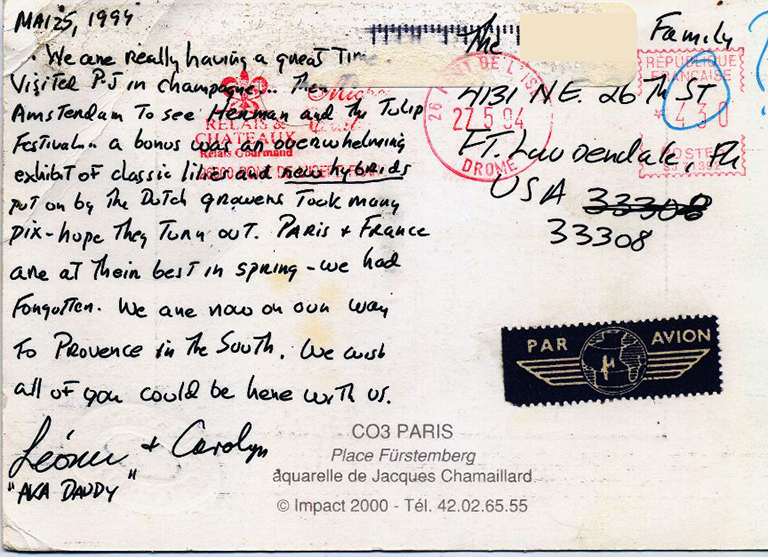 MAI 25, 1994
We are really having a great Tim
Visited P.J in champagne... Then
Amsterdam To see Herman and the Tulip
Festival.. a bonus was an overwhelming
exhibit of classic lilies and new hybrids
put on by The Dutch growers Took many
pix-hope They Turn out. PARIS + FRANCE
are at their best in spring - we had
Forgotten. We are now on our way
To Provence in The South. We wish
all of you could be here with us.
+ Carolyn
"AKA DADDY"
The
Family
4131 N.E. 26 Th ST
FT. Lauderdale, Fla
USA 33308
33308
RELAIS &
CHATEAUX
Relais Gourmand
26
DE L'IS
22.5.94
DROME
RÉPUBLIQUE
FRANÇAISE
* 4 3 0
POSTE
PAR AVION
CO3 PARIS
Place Fürstemberg
aquarelle de Jacques Chamaillard
© Impact 2000 - Tél. 42.02.65.55